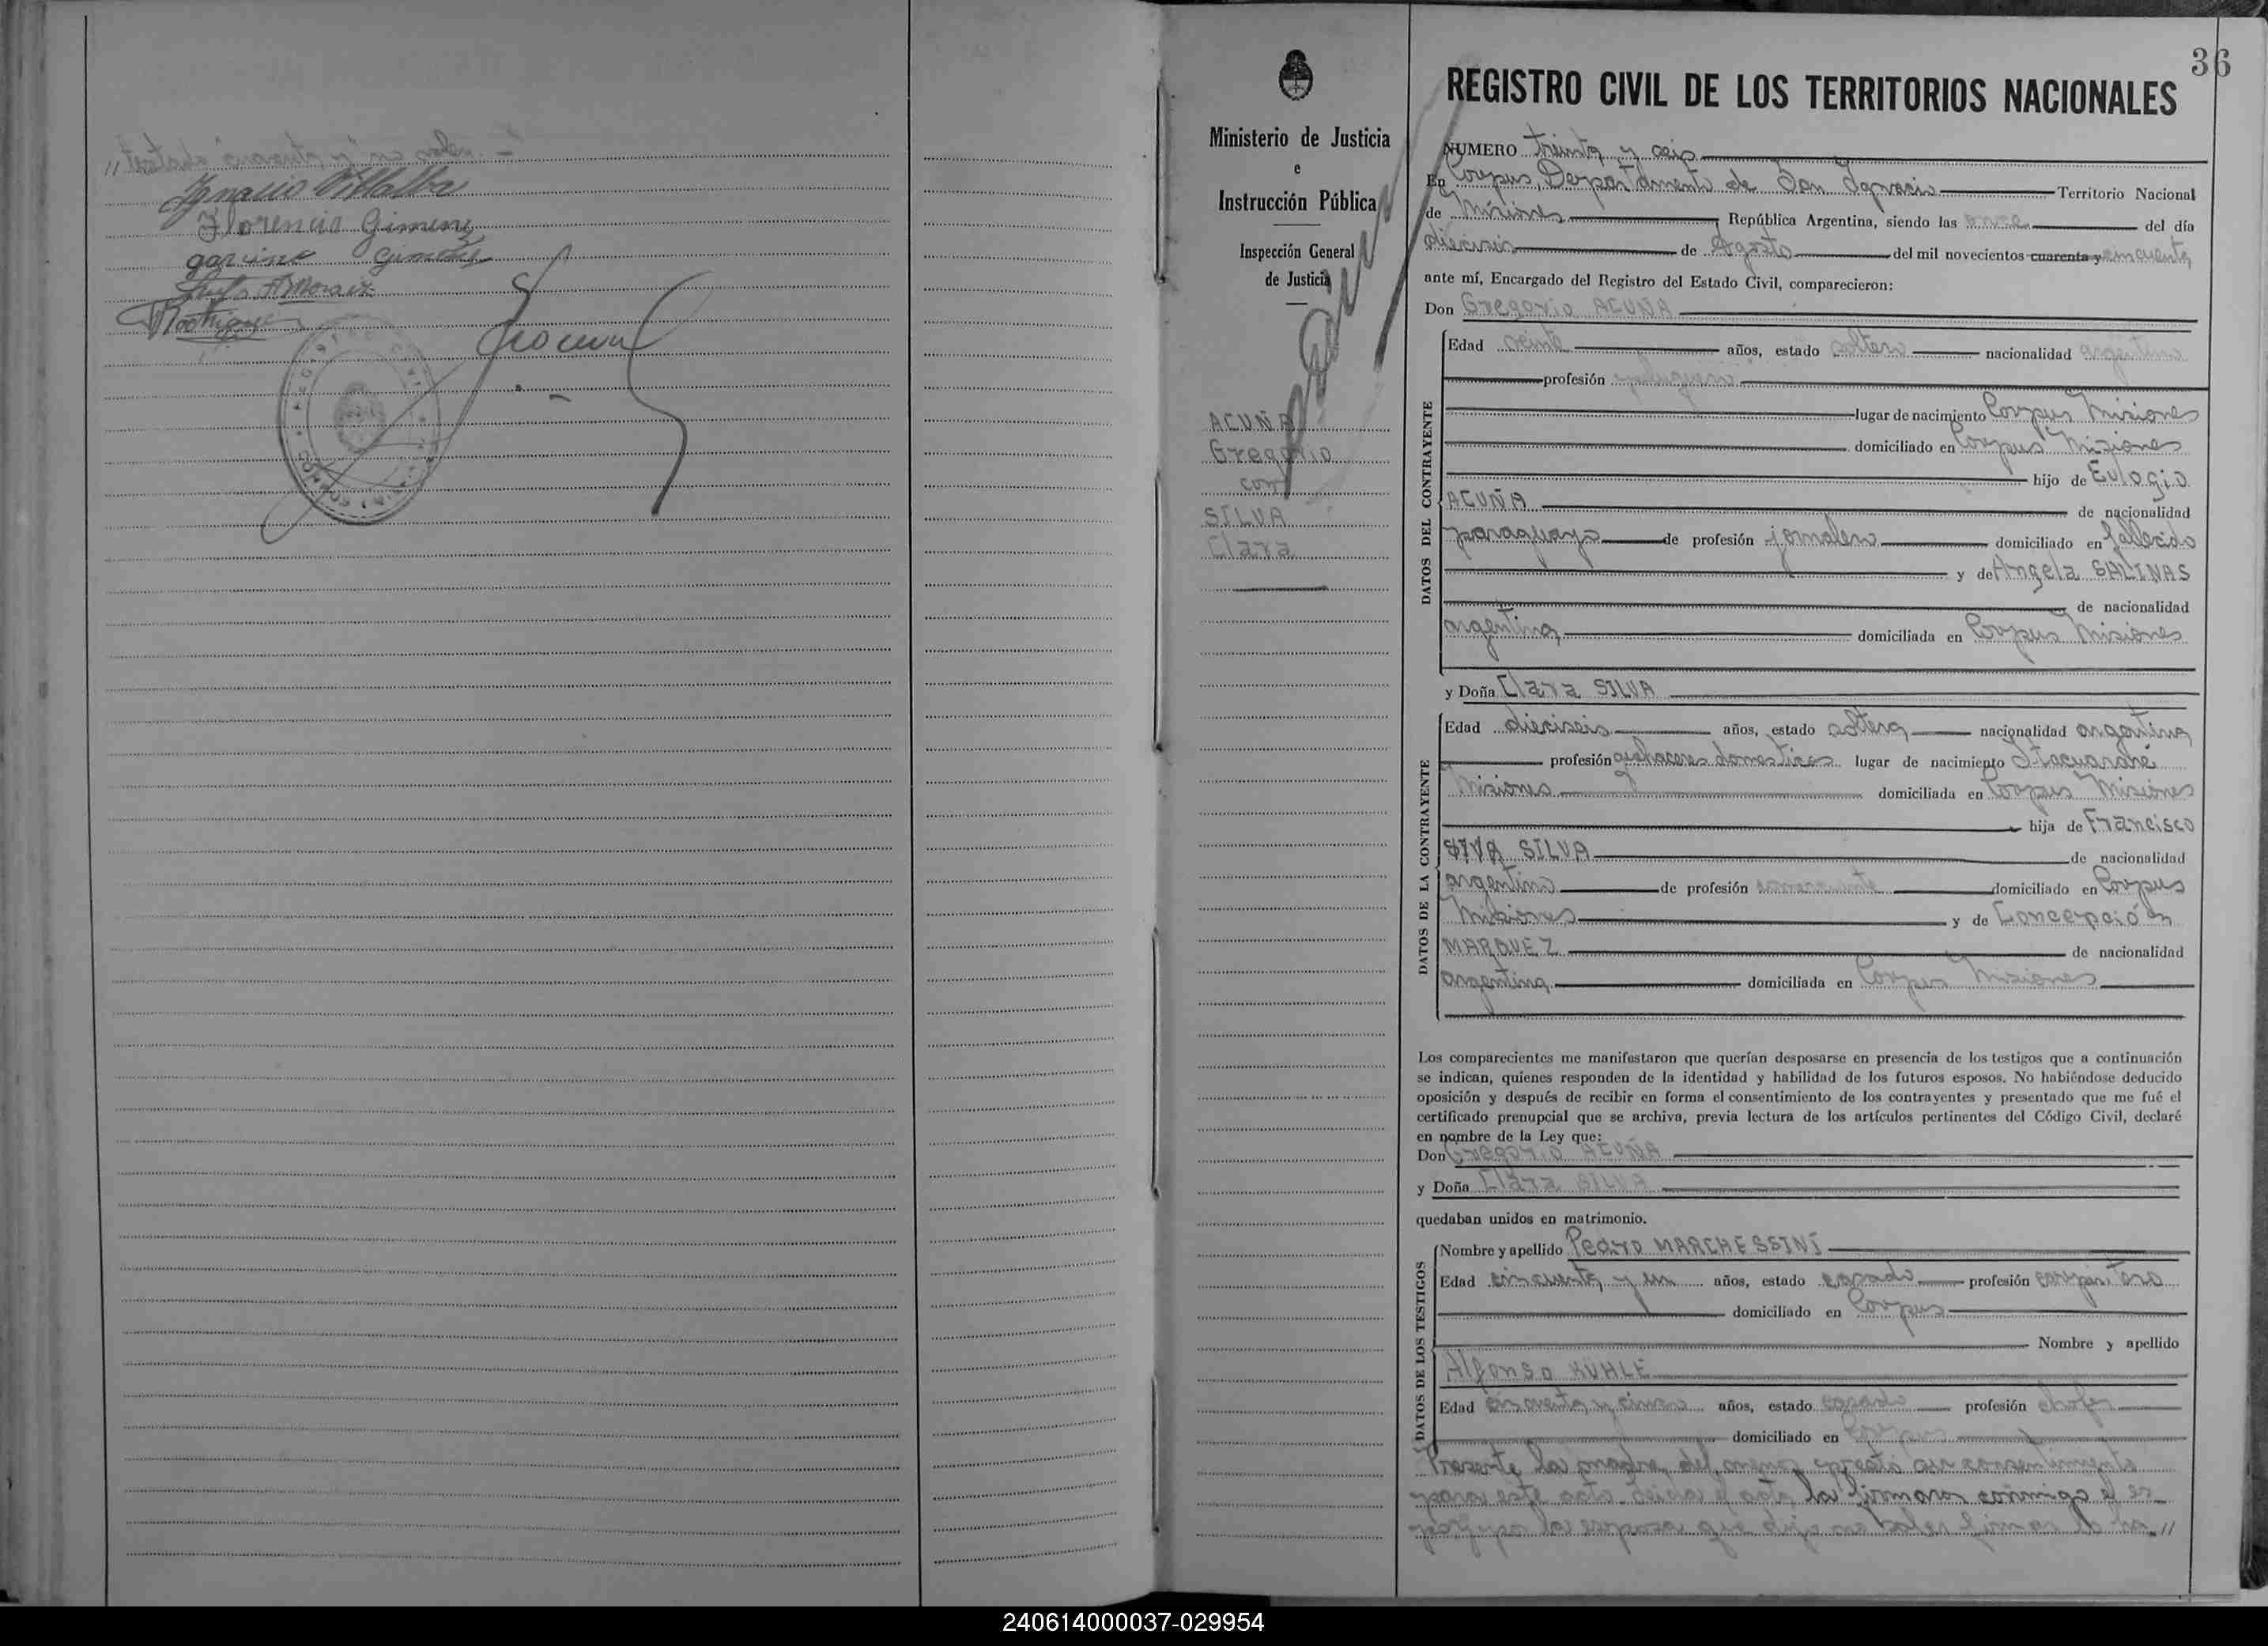 „Testado "cuarenta y" no valen.—
Ignacio Villalba
Florencio Gimenez
gavino Gimenez
36
Ministerio de Justicia
e
Instrucción Pública
Inspección General
de Justicia
ACUÑA
Gregorio
con
SILVA
Clara
REGISTRO CIVIL DE LOS TERRITORIOS NACIONALES
NUMERO treinta y seis
En Corpus, Departamento de San Ignacio Territorio Nacional
de Misiones República Argentina, siendo las once del día
dieciseis de Agosto del mil novecientos cuarenta y cincuenta
ante mí, Encargado del Registro del Estado Civil, comparecieron:
Don Gregorio ACUÑA
DATOS DEL CONTRAYENTE
Edad veinte años, estado soltero nacionalidad argentino
profesión
lugar de nacimiento Corpus Misiones
domiciliado en Corpus Misiones
hijo de Eulogio
ACUÑA de nacionalidad
paraguayo de profesión jornalero domiciliado en fallecido
y de Angela SALINAS
de nacionalidad
argentina domiciliada en Corpus Misiones
y Doña Clara SILVA
DATOS DE LA CONTRAYENTE
Edad dieciseis años, estado soltera nacionalidad argentina
profesión quehaceres domesticos lugar de nacimiento Itacuararé
Misiones domiciliada en Corpus Misiones
hija de Francisco
SIVA SILVA de nacionalidad
argentino de profesión comerciante domiciliado en Corpus
Misiones y de Concepción
MARQUEZ de nacionalidad
argentina domiciliada en Corpus Misiones
Los comparecientes me manifestaron que querían desposarse en presencia de los testigos que a continuación
se indican, quienes responden de la identidad y habilidad de los futuros esposos. No habiéndose deducido
oposición y después de recibir en forma el consentimiento de los contrayentes y presentado que me fué el
certificado prenupcial que se archiva, previa lectura de los artículos pertinentes del Código Civil, declaré
en nombre de la Ley que:
Don Gregorio ACUÑA
y Doña Clara SILVA
quedaban unidos en matrimonio.
DATOS DE LOS TESTIGOS
Nombre y apellido Pedro MARCHESSINI
Edad cincuenta y un años, estado casado profesión carpintero
domiciliado en Corpus
Nombre y apellido
Alfonso KUHLE
Edad cincuenta y cinco años, estado casado profesión chofer
domiciliado en Corpus
Presente la madre del menor presta su consentimiento
para este acto. Leida el acta la firmaron conmigo
por la esposa que dijo no saber firmar lo ha„
240614000037-029954